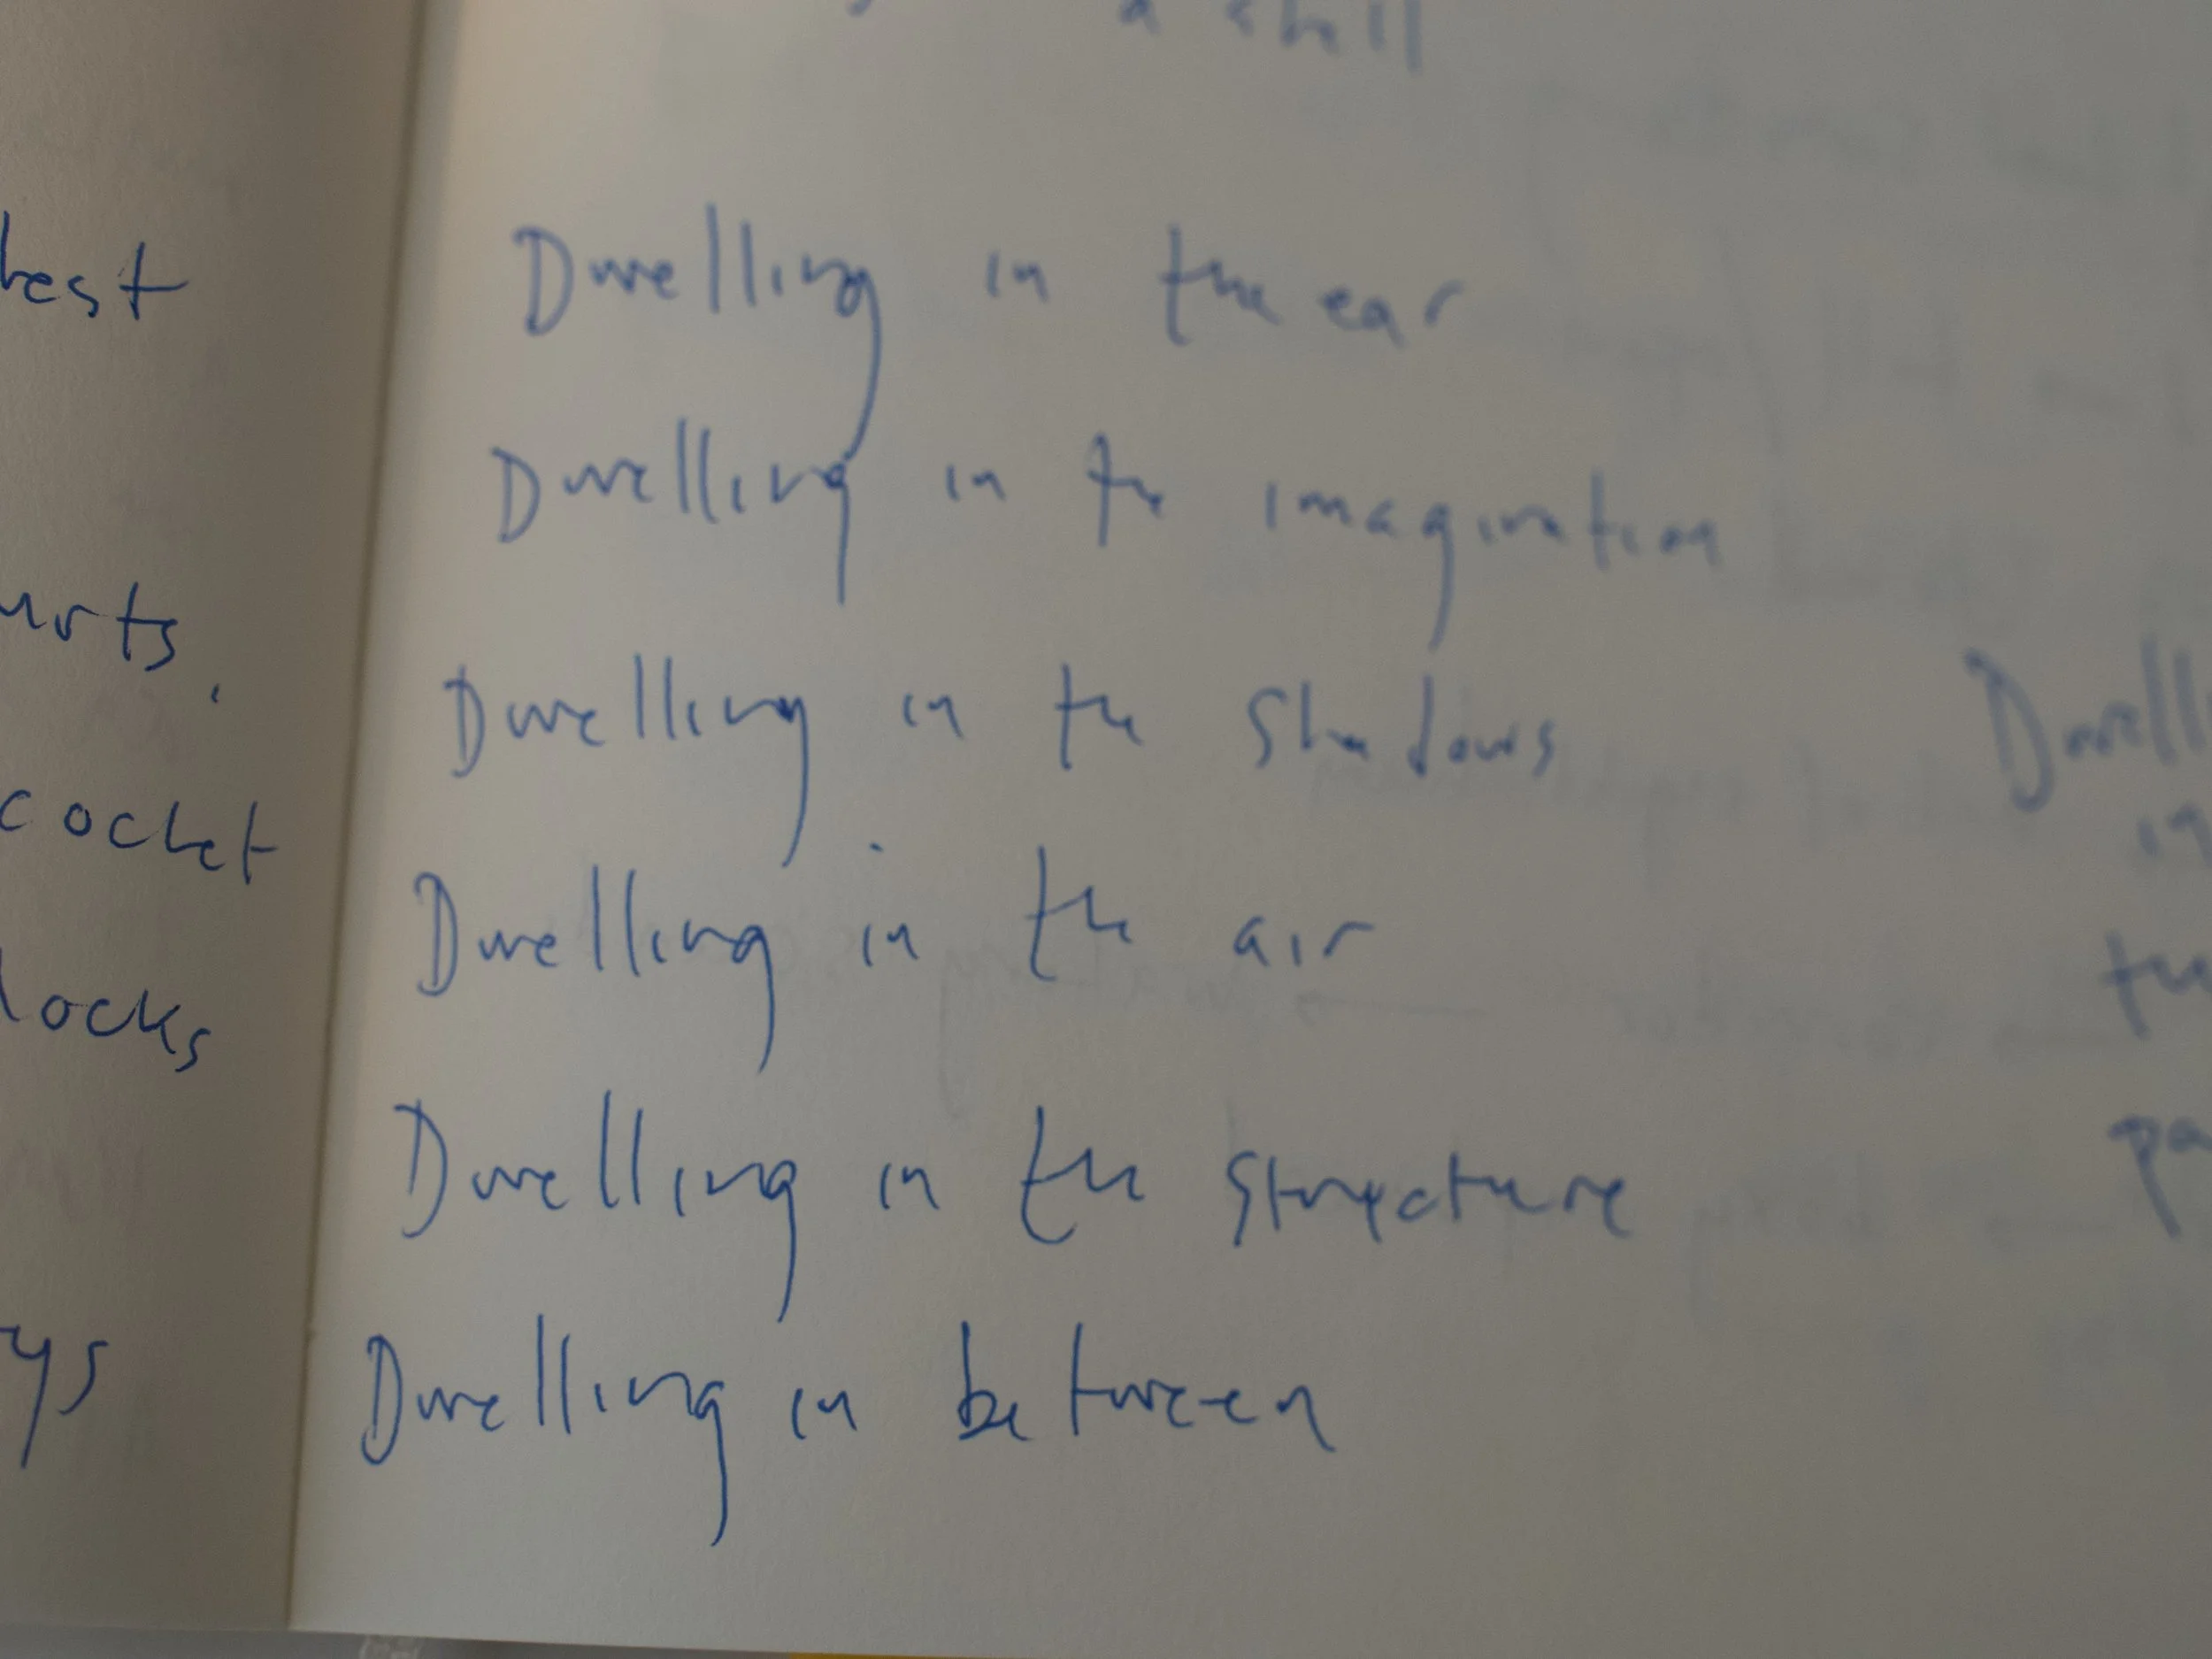 est
urts.
ocket
locks
ys
a shell
Dwelling in the ear
Dwelling in the imagination
Dwelling in the shadows
Dwelling in the air
Dwelling in the structure
Dwelling in between
Dwell
in
the
pa